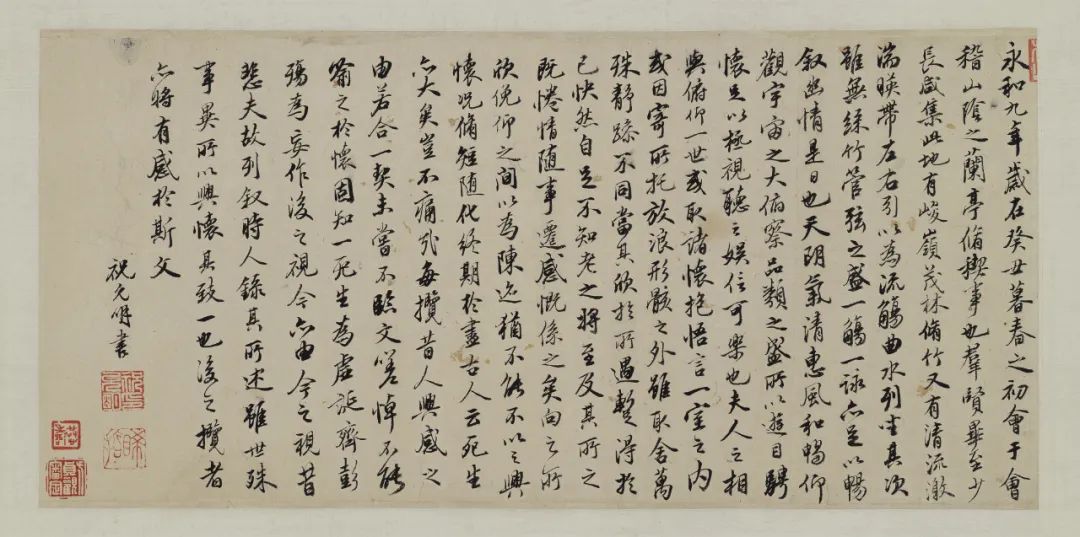 永和九年歲在癸丑暮春之初會于會
稽山陰之蘭亭脩稧事也羣賢畢至少
長咸集此地有峻嶺茂林脩竹又有清流激
湍暎帶左右引以為流觴曲水列坐其次
雖無絲竹管弦之盛一觴一詠亦足以暢
叙幽情是日也天朗氣清惠風和暢仰
觀宇宙之大俯察品類之盛所以遊目騁
懷足以極視聽之娛信可樂也夫人之相
與俯仰一世或取諸懷抱悟言一室之內
或因寄所托放浪形骸之外雖取舍萬
殊靜躁不同當其欣於所遇暫得於
己怏然自足不知老之將至及其所之
既惓情隨事遷感慨係之矣向之所
欣俛仰之間以為陳迹猶不能不以之興
懷況脩短隨化終期於盡古人云死生
亦大矣豈不痛哉每攬昔人興感之
由若合一契未嘗不臨文嗟悼不能
喻之於懷固知一死生為虛誕齊彭
殤為妄作後之視今亦由今之視昔
悲夫故列叙時人錄其所述雖世殊
事異所以興懷其致一也後之攬者
亦將有感於斯文
祝允明書